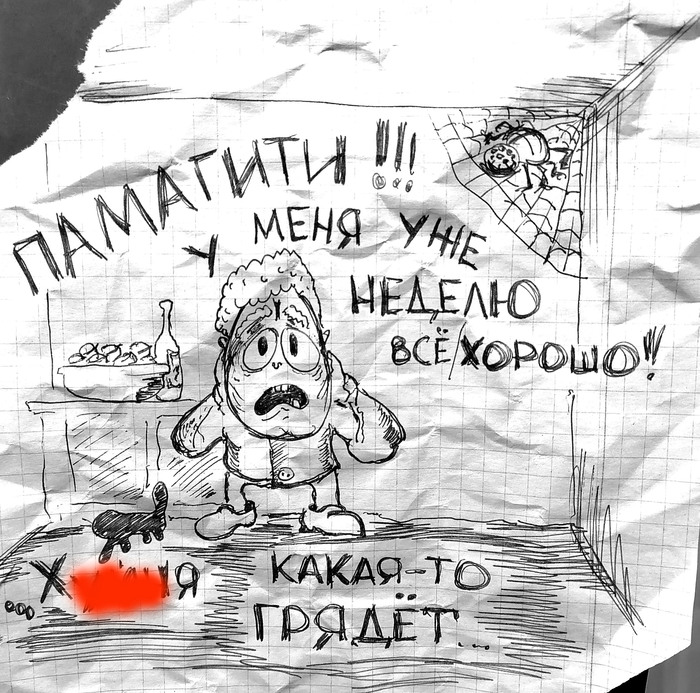 ПАМАГИТИ!!!
У МЕНЯ УЖЕ
НЕДЕЛЮ
ВСЁ ХОРОШО!!
КАКАЯ-ТО
ГРЯДЁТ...